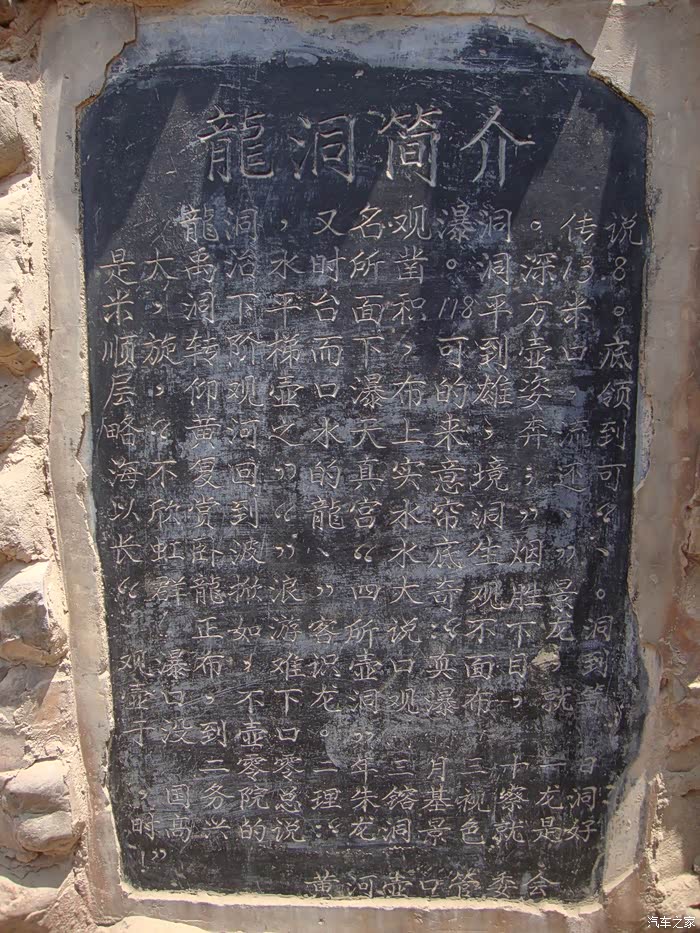 龍洞简介
龍洞，又名观瀑洞。传说
是大禹治水时所凿。洞深13 8
米，洞下平台面积118平方米。
顺旋转阶梯而下，可到壶口底
层，仰观壶口瀑布的雄姿，领
略“黄河之水天上来，奔流到
海不复回”的真实意境，还可
以欣赏到“龍宫水帘洞”、“
长虹卧波”、“水底生烟”、
“群龍掀浪”四大奇观胜景。
正如游客所说：“不下龙洞
观瀑布，不识壶口真面目，到
壶口不下龙洞观瀑布，就等
于没到壶口。”
二零零二年三月三十一日
，国务院总理朱镕基视察龙洞
时高兴的说：“龙洞景色就是好
！”
黄河壶口管委会
汽车之家